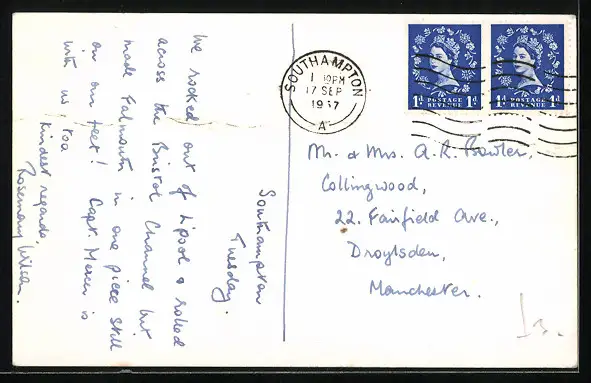 Southampton
Tuesday.
We rocked out of L'pool & rolled
across the Bristol Channel but
made Falmouth in one piece still
on our feet! Capt. Mercer is
with us, too
Kindest regards,
Rosemary Wilson.
SOUTHAMPTON
1 30PM
17 SEP
1957
A
1d POSTAGE REVENUE 1d
1d POSTAGE REVENUE 1d
Mr. & Mrs. A. R. Bowler,
Collingwood,
22. Fairfield Ave.,
Droylsden,
Manchester.